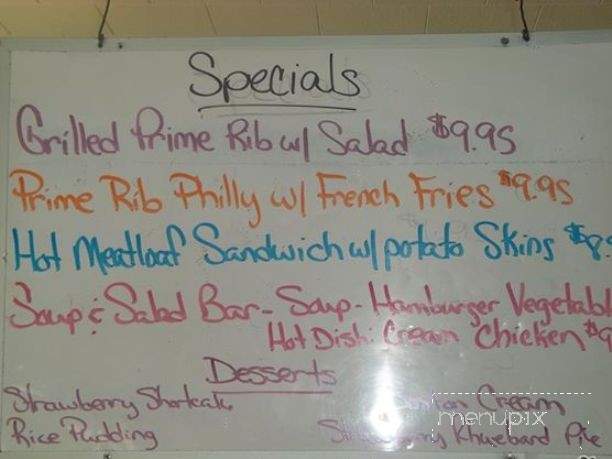 Specials
Grilled Prime Rib w/ Salad $9.95
Prime Rib Philly w/ French Fries $9.95
Hot Meatloaf Sandwich w/ potato Skins $8.
Soup & Salad Bar - Soup - Hamburger Vegetabl
Hot Dish: Cream Chicken $9
Desserts
Strawberry Shortcake Cream
Rice Pudding Strawberry Rhuebard Pie
menupix